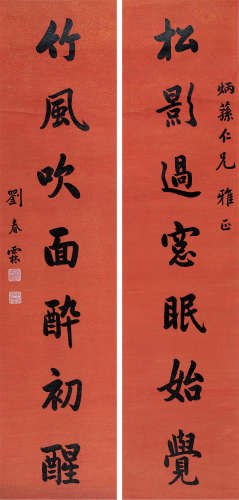 炳蓀仁兄 雅正
松影過窓眠始覺
竹風吹面醉初醒
劉春霖